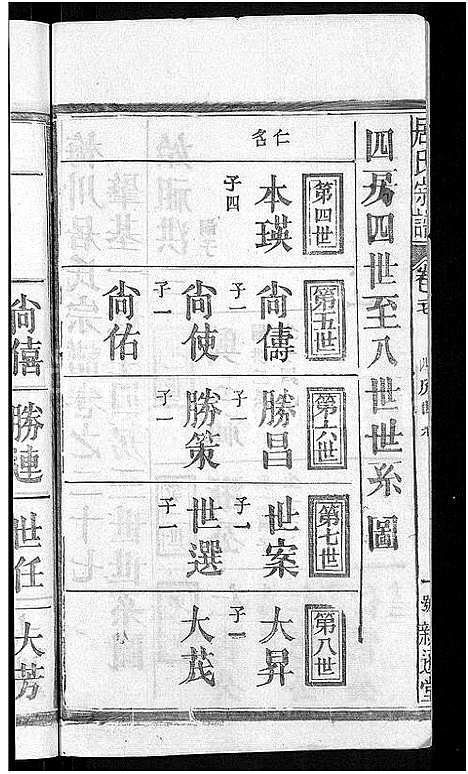 居氏宗譜
卷
四房四世至八世世系圖
第四世
第五世
第六世
第七世
第八世
仁名
本瑛
子四
尚傳
子一
勝昌
子一
世案
子一
大昇
子一
尚使
子一
勝策
子一
世選
子一
大茂
尚佑
子一
尚僖
勝連
世任
大芳